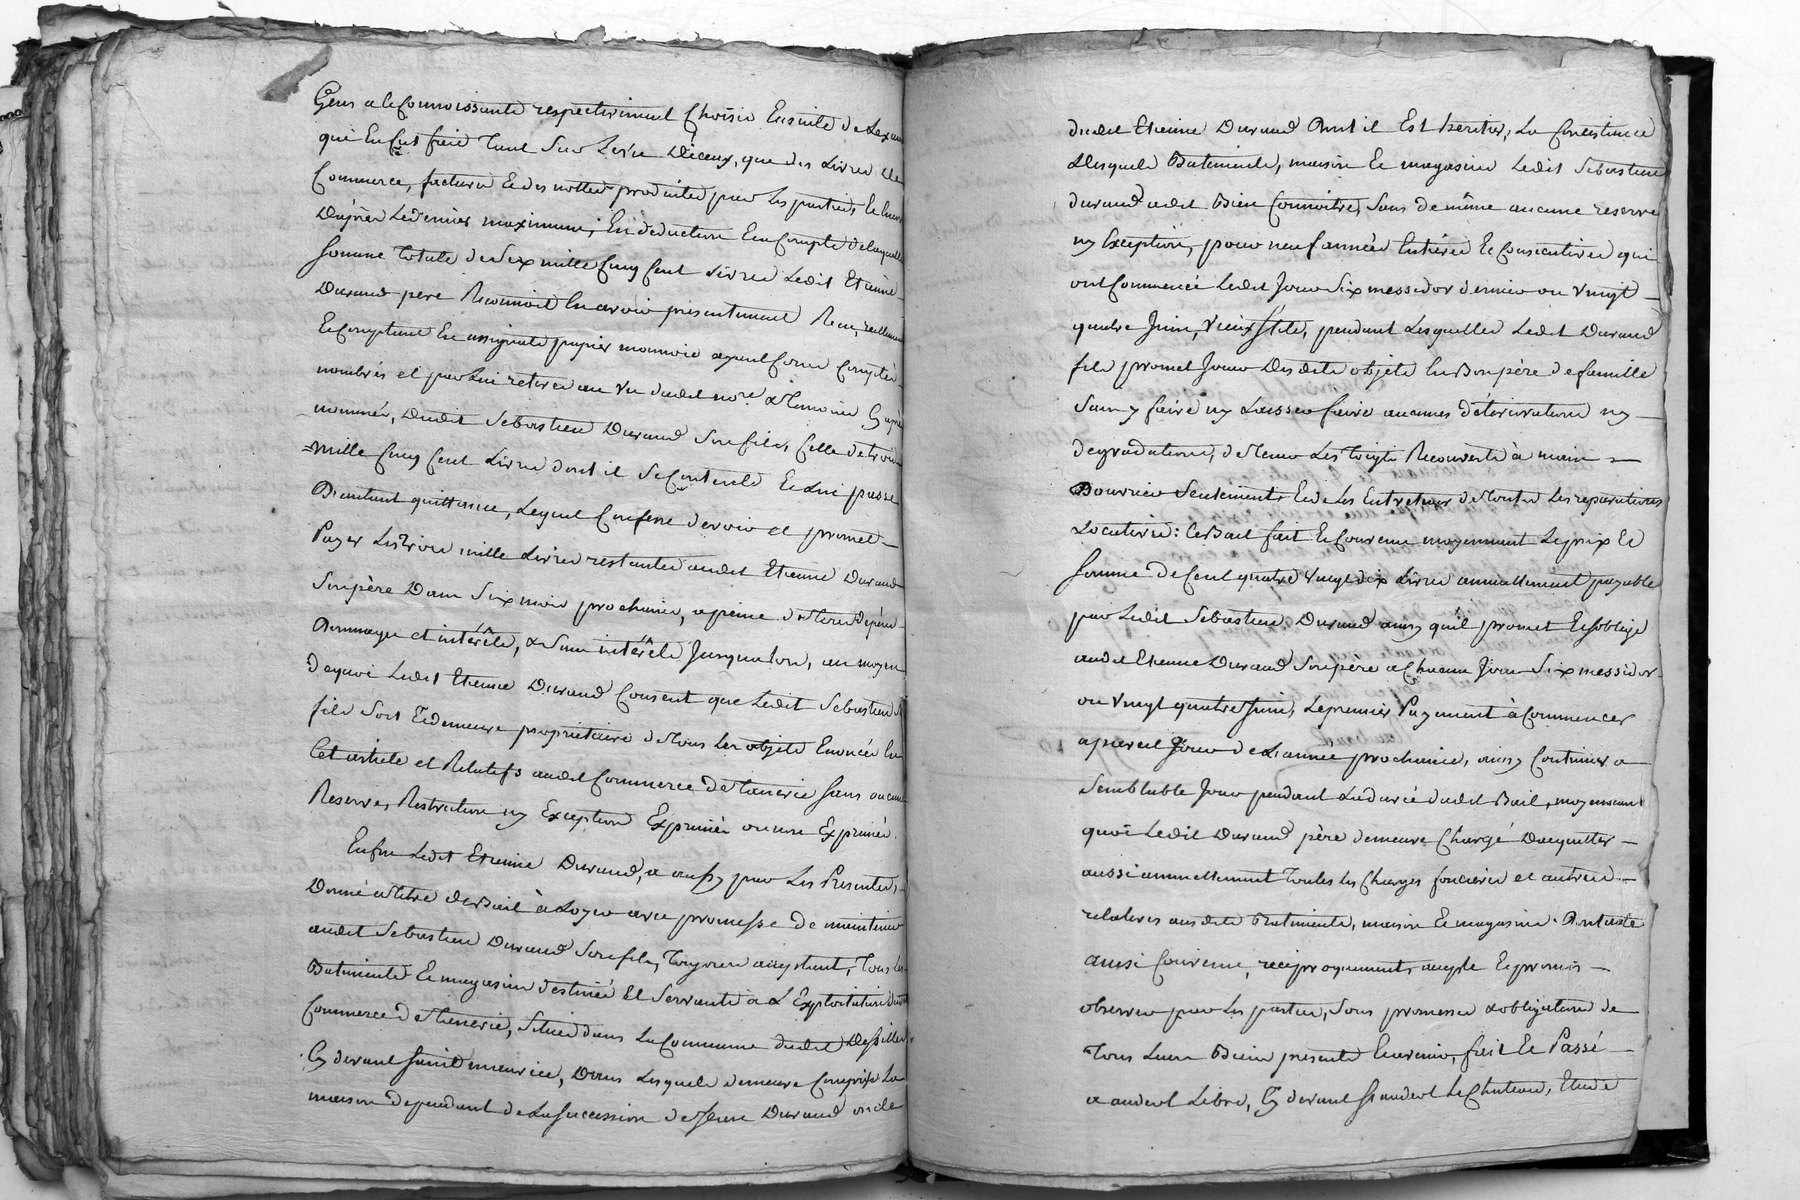 Gens a le Connoissants respectivement Choisis Ensuite de Lexamen
qui En fut fait Tant Sur Le vu Diceux, que des Livres de
Commerce, factures Et des nottes produites par Les parties, Et
Daprès Le dernier maximum; En déduction Et a Compte de laquelle
Somme Totale de Six mille Cinq Cent Livres Ledit Etienne
Durand pere Reconnoit En avoir presentement Reçu, reellement
Et Comptant En assignats papier monnoie ayant Cours Comptés
nombrés et par Lui retirés au Vu dudit no.re & Temoins Cy après
nommés, Dudit Sebastien Durand Son fils, Celle de trois
=mille Cinq Cent Livres dont il Se Contente Et Lui passe
D'autant quittance, Lequel Confesse devoir et promet
Payer Les Trois mille Livres restantes audit Etienne Durand
Son père Dans Six mois prochains, a peine de Tous dépens
Dommages et intérêts, & Sans intérêts Jusqu'alors, au moyen
dequoi Ledit Etienne Durand Consent que Ledit Sebastien
fils Soit Et demeure propriétaire de Tous Les objets Enoncés En
Cet article et Relatifs audit Commerce de Tannerie Sans aucune
Reserve, Restriction ny Exception Exprimée ou non Exprimée.
Enfin Ledit Etienne Durand, a aussy par Les Presentes,
Donné a Titre de Bail à Loyer avec promesse de maintenir
audit Sebastien Durand Son fils, Toujours acceptant, Tous Les
Batiments Et magasins destinés Et Servants a L'Exploitation dudit
Commerce de Tannerie, Situés dans La Commune dudit
Cy devant Saint maurice, Dans Lesquels demeure Compris La
maison dependant de La Succession de Feu Durand oncle
dudit Etienne Durand Dont il Est heritier, La Consistance
Desquels Batiments, maison Et magasins Ledit Sebastien
durand a dit Bien Connoitre, Sans de même aucune reserve
ny Exception, pour neuf années Entières Et Consecutives qui
ont Commencé Ledit Jour Six messidor dernier ou Vingt
quatre Juin, Vieux Stile, pendant Lesquelles Ledit Durand
fils promet Jouir Desdits objets En Bon père de famille
Sans y faire ny Laisser faire aucunes déteriorations ny
degradations, de Tenir Les Toigts Recouverts à main
D'ouvrier Seulement, Et de Les Entretenir de Toutes Les reparations
Locatives: Ce Bail fait Et Convenu moyennant Le prix Et
Somme de Cent quatre Vingt dix Livres annuellement payable
par Ledit Sebastien Durand ainsy qu'il promet Et S'oblige
audit Etienne Durand Son père a Chacun Jour Six messidor
ou Vingt quatre Juin, Le premier Payement à Commencer
a pareil Jour de L'année prochaine, ainsy Continuer a
Semblable Jour pendant La durée dudit Bail, moyennant
quoi Ledit Durand père demeure Chargé Dacquitter
aussi annuellement Toutes Les Charges foncieres et autres
relatives ausdits Batiments, maison Et magasins. Dont acte
ainsi Convenu, reciproquement, accepté Et promis
observer par Les parties, Sous promesse & obligations de
Tous Leurs Biens presents Et avenir, fait Et Passé
a andeol Libre, Cy devant St andeol Le Chateau, Etude